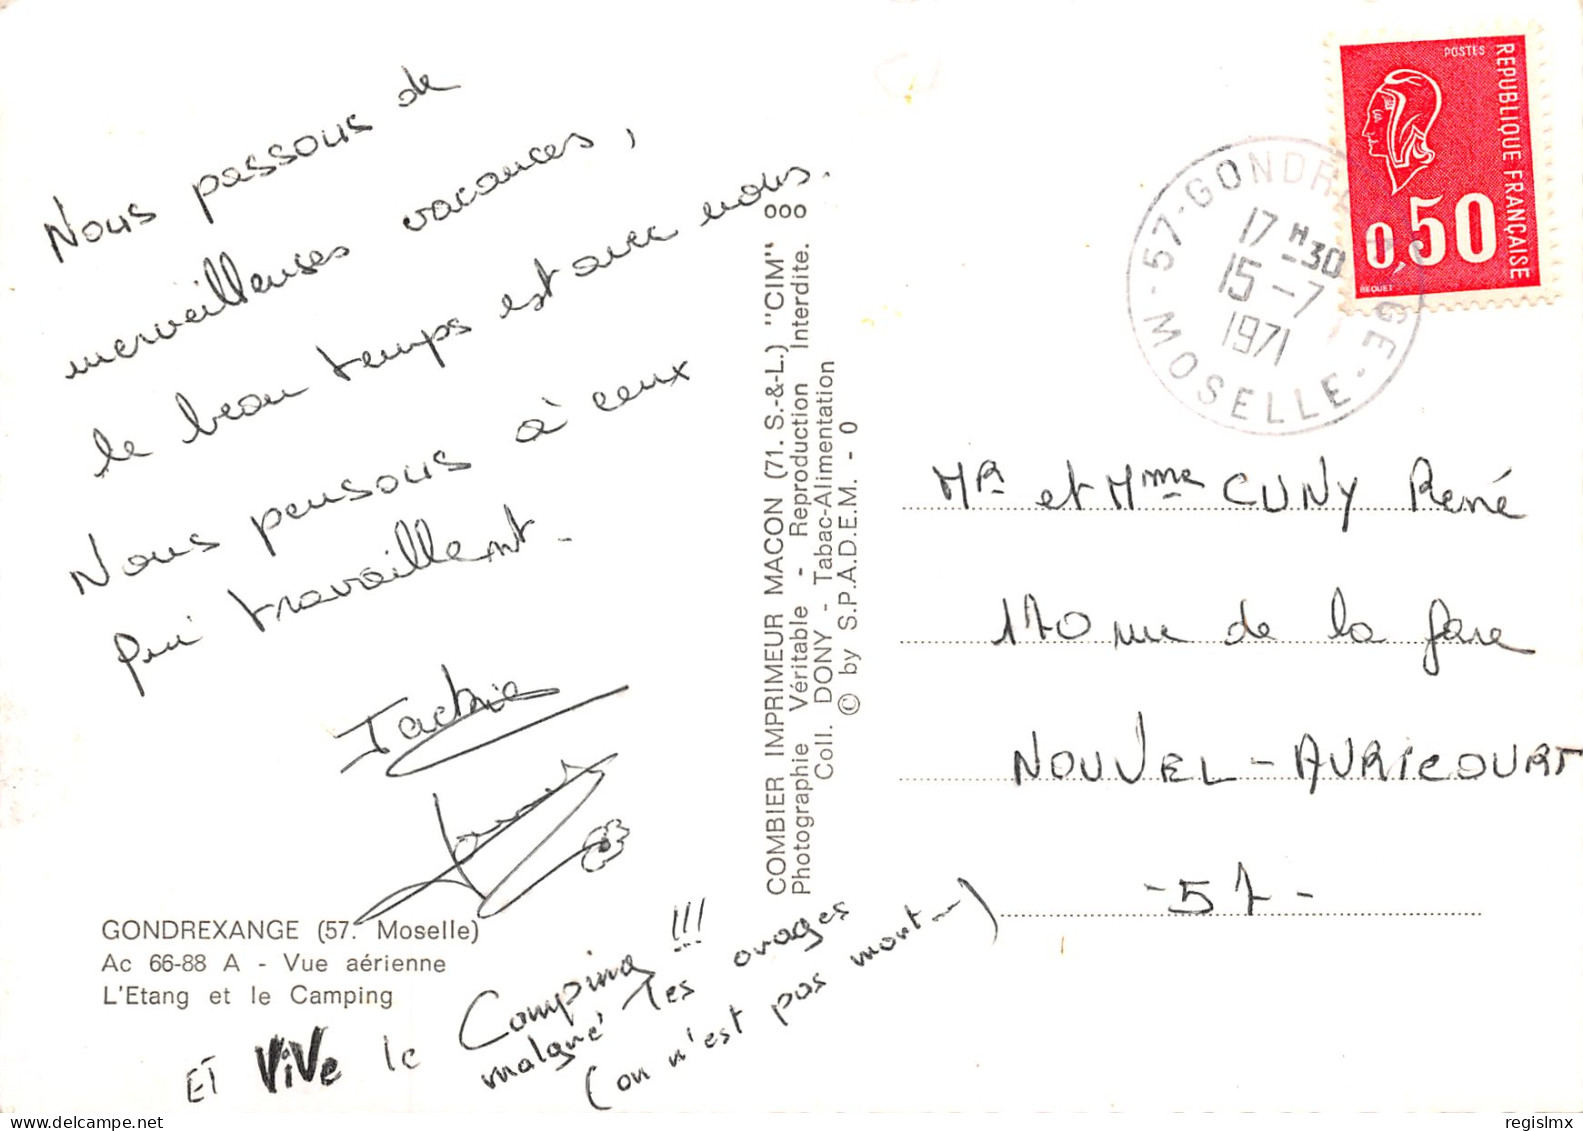 Nous passons de
merveilleuses vacances,
le beau temps est avec nous.
Nous pensons à ceux
qui travaillent.
Jackie
GONDREXANGE (57. Moselle)
Ac 66-88 A - Vue aérienne
L'Etang et le Camping
ET VIVE le Camping !!!
malgré les orages
(on n'est pas mort...)
COMBIER IMPRIMEUR MACON (71. S.-&-L.) "CIM"
Photographie Véritable - Reproduction Interdite. 000
Coll. DONY - Tabac-Alimentation
© by S.P.A.D.E.M. - 0
POSTES
REPUBLIQUE FRANÇAISE
0,50
BEQUET
57-GONDREXANGE
17 H30
15-7
1971
MOSELLE
MR et Mme CUNY René
170 rue de la gare
NOUVEL-AVRICOURT
-57-
regislmx